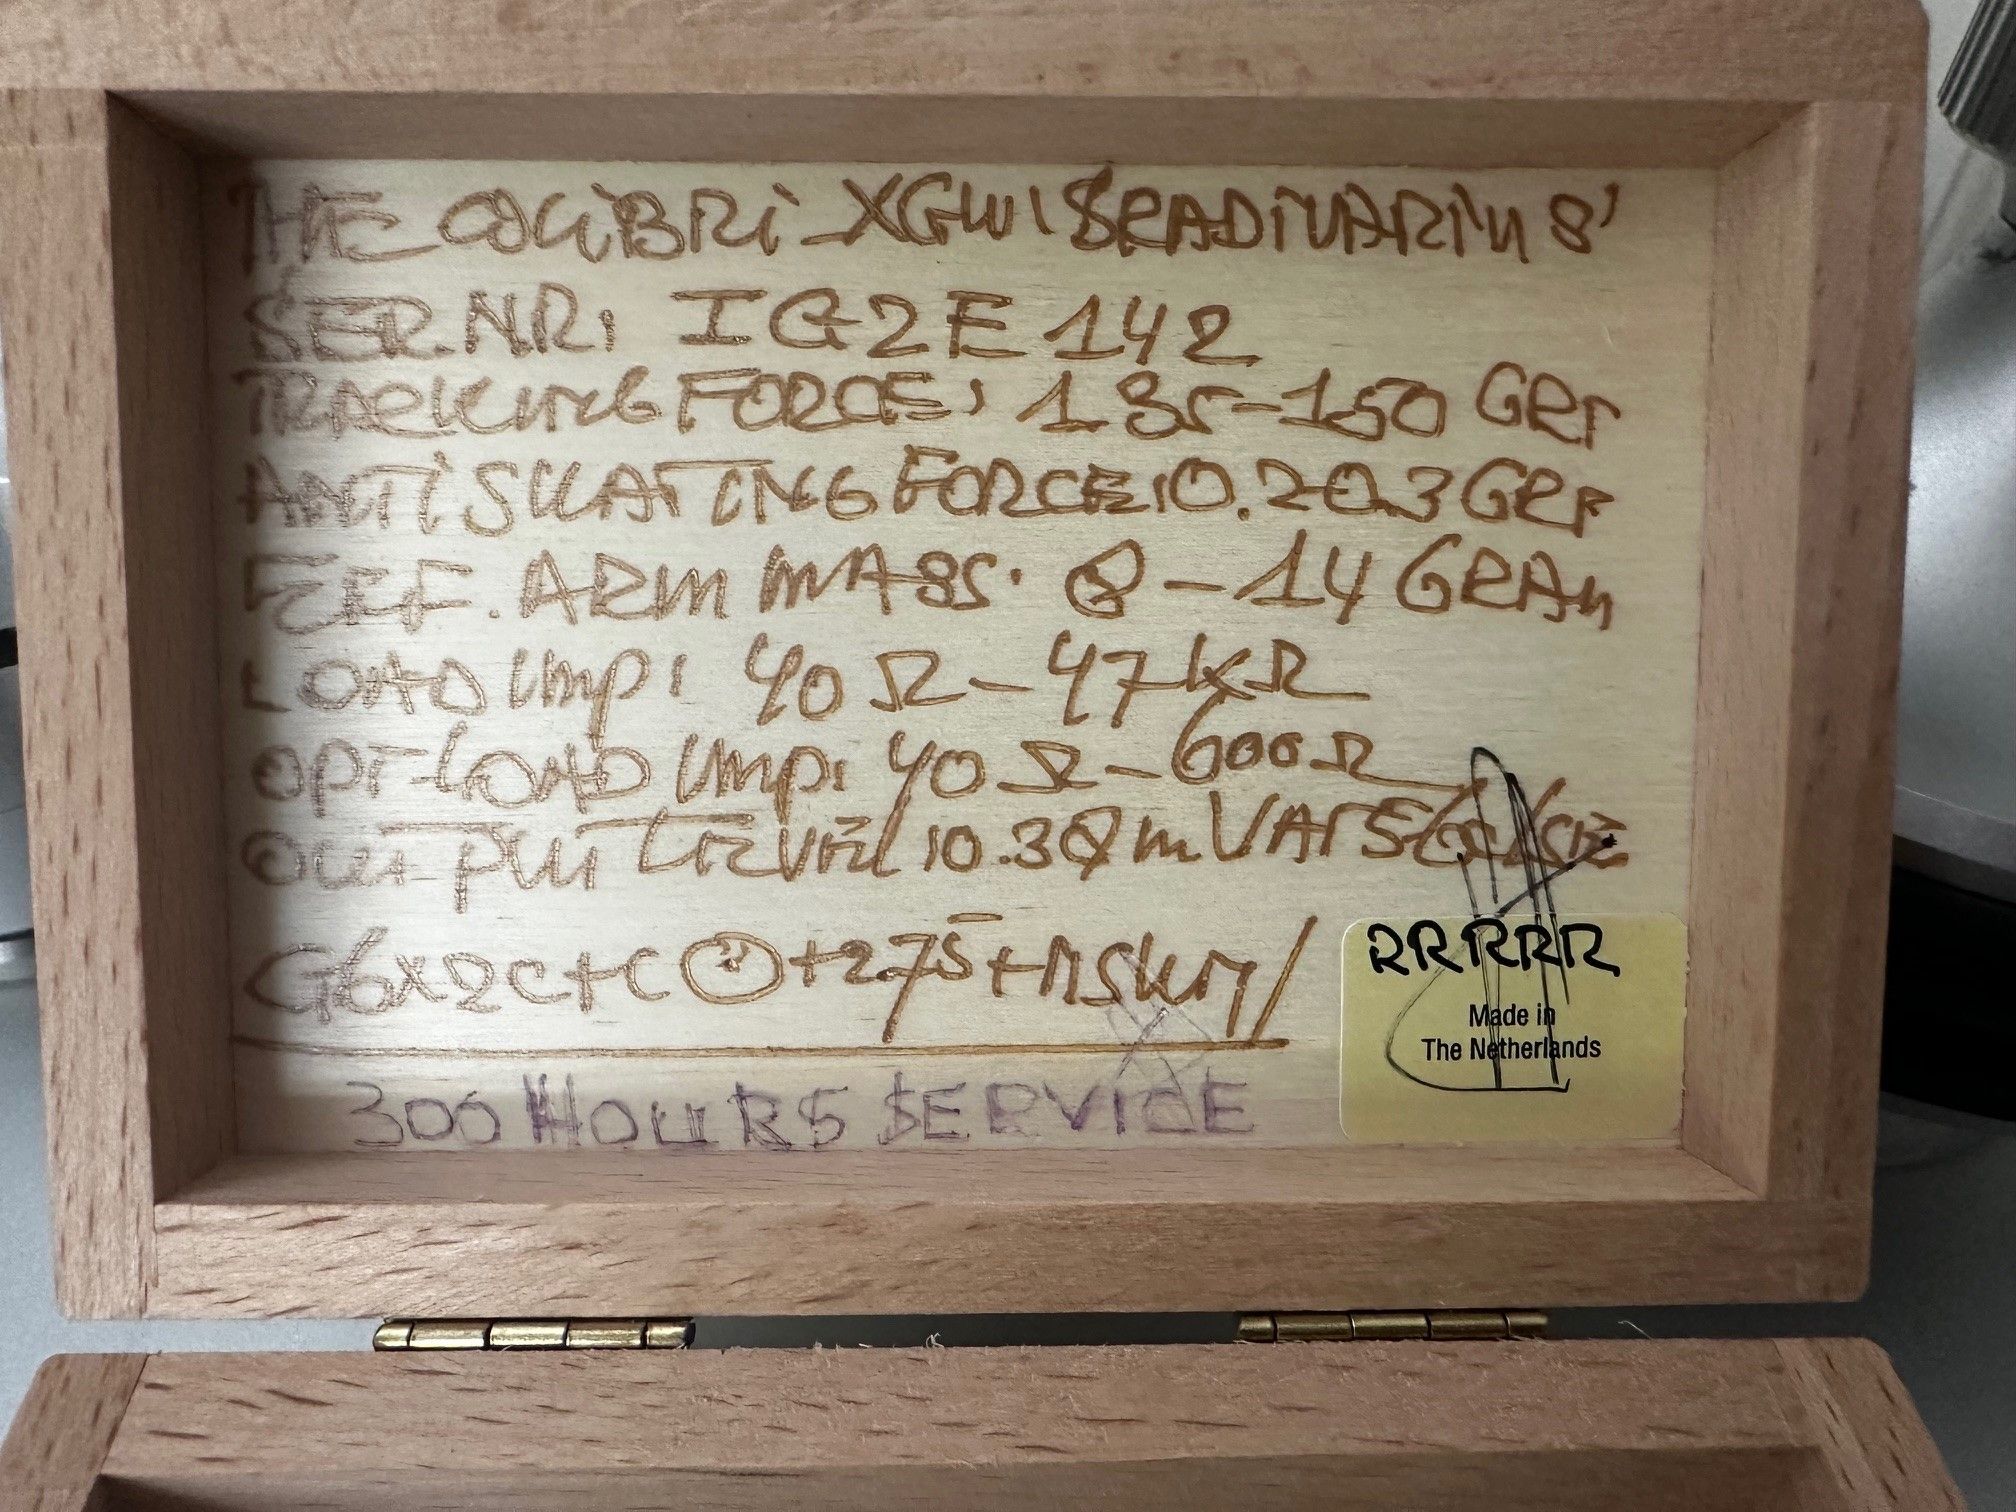 THE COLIBRI XGW 'STRADIVARIUS'
SER.NR: IG2E142
TRACKING FORCE: 1.35-1.50 GRF
ANTI SKATING FORCE: 0.20.3 GRF
EFF. ARM MASS: 8-14 GRAM
LOAD IMP: 40Ω-47KΩ
OPT-LOAD IMP: 40Ω-600Ω
OUTPUT LEVEL: 0.38mV AT 5
G6x2C+C +275
300 HOURS SERVICE
RRRRR
Made in
The Netherlands